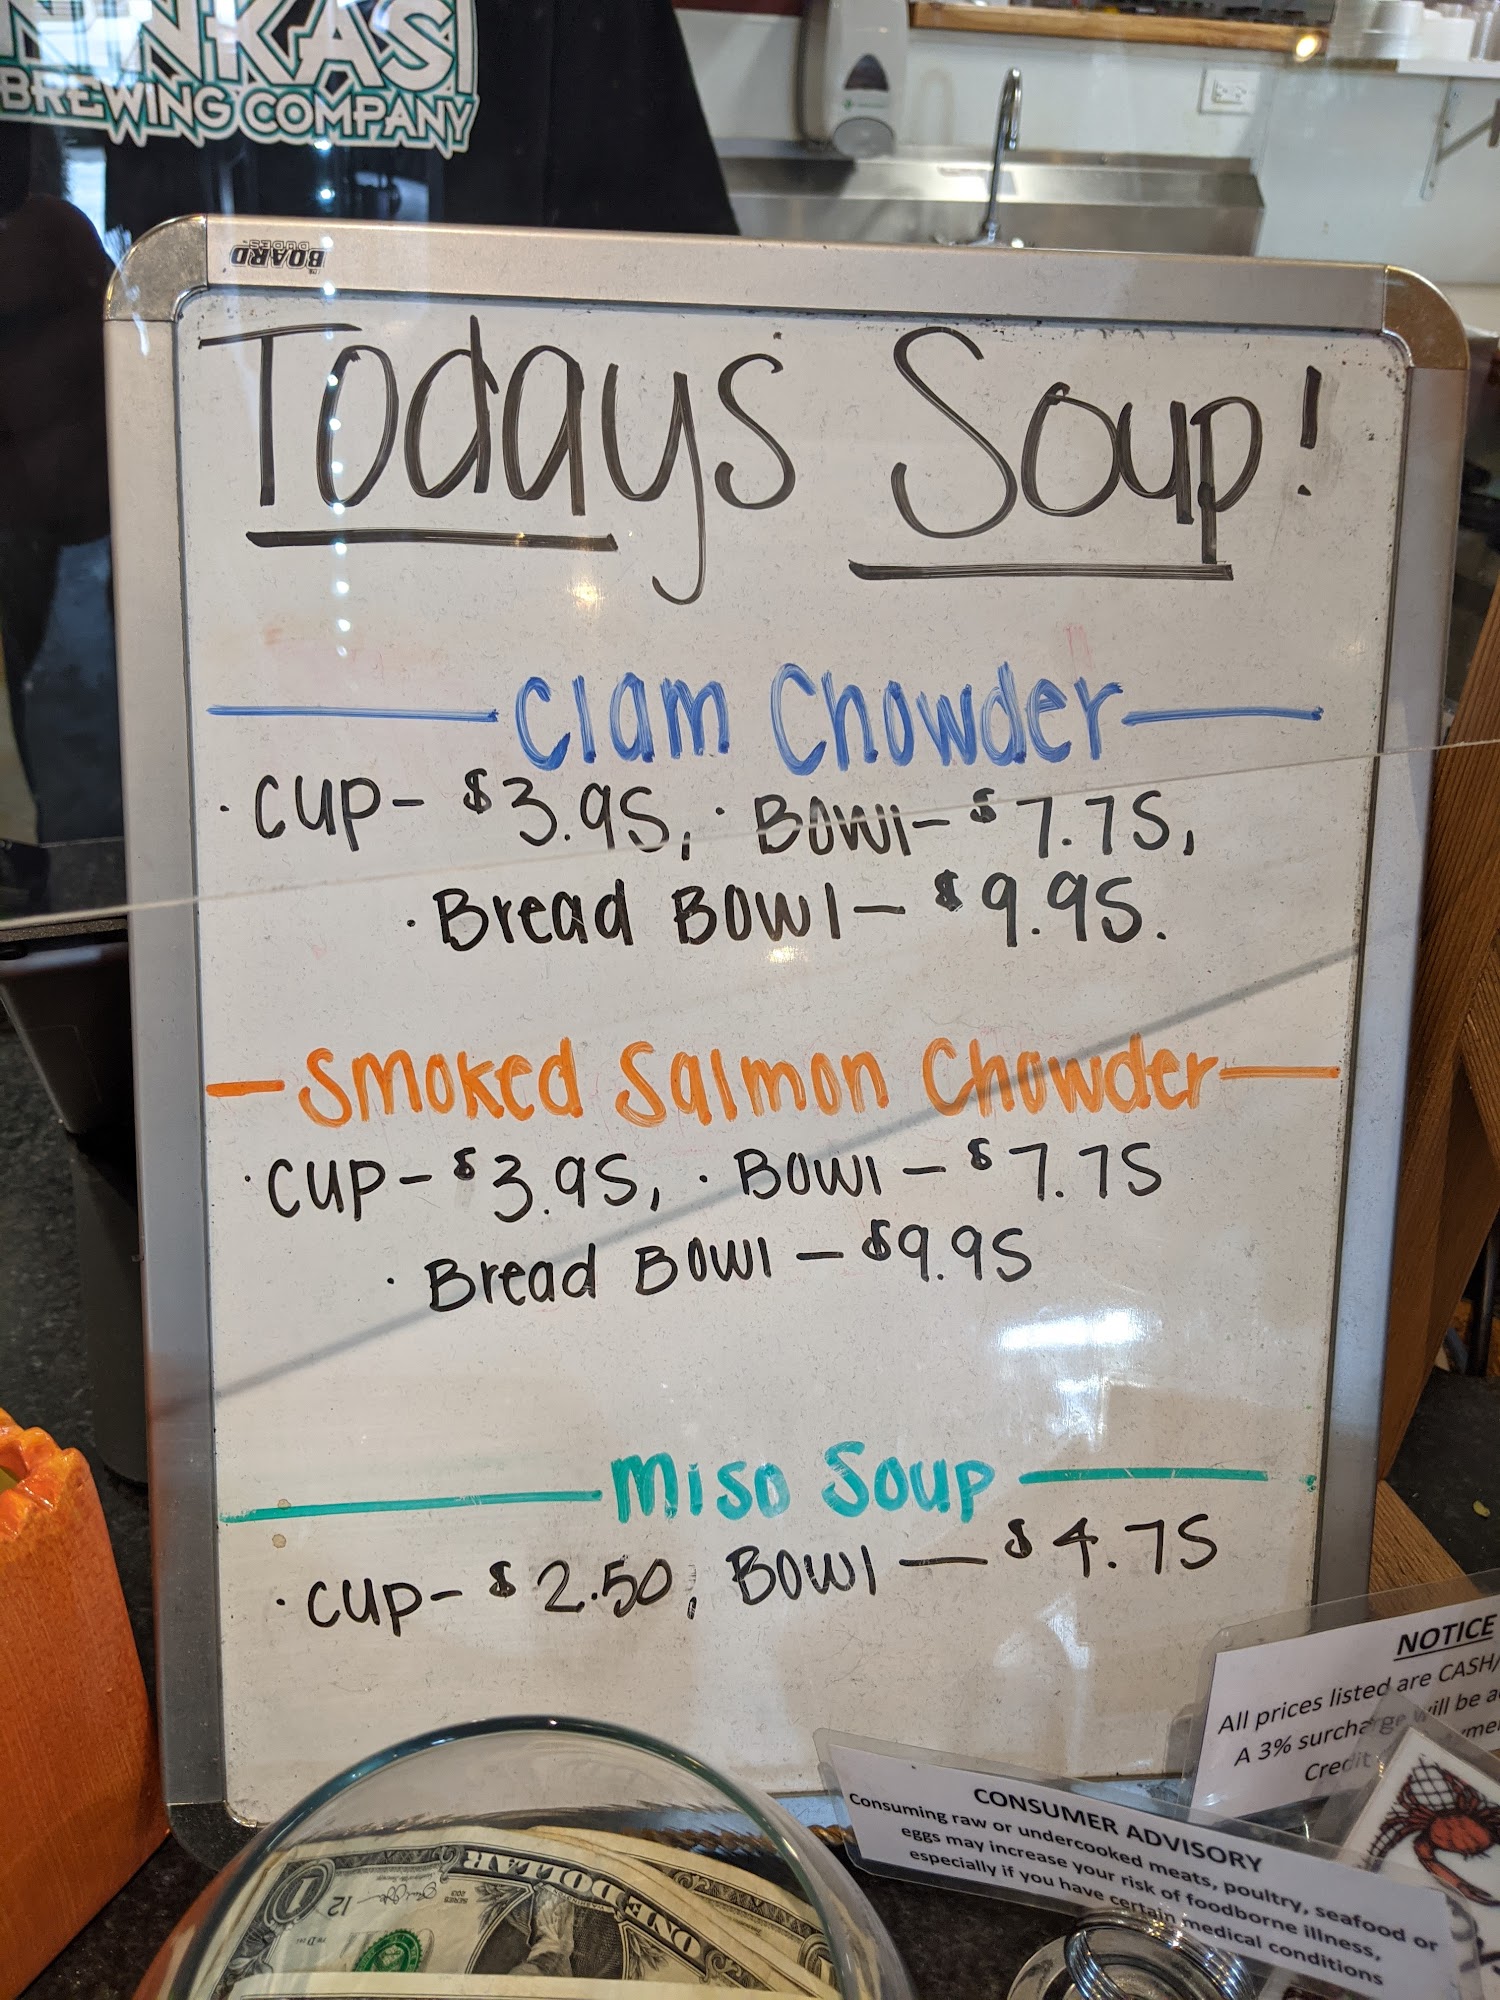 BREWING COMPANY
THE BOARD
DUDES
Todays Soup!
Clam Chowder
· Cup - $3.95, · Bowl - $7.75,
· Bread Bowl - $9.95.
Smoked Salmon Chowder
· Cup - $3.95, · Bowl - $7.75
· Bread Bowl - $9.95
Miso Soup
· Cup - $2.50, Bowl - $4.75
NOTICE
All prices listed are CASH/
A 3% surcharge will be
Credit
CONSUMER ADVISORY
Consuming raw or undercooked meats, poultry, seafood or
eggs may increase your risk of foodborne illness,
especially if you have certain medical conditions
ONE DOLLAR
1
12
SERIES
2013